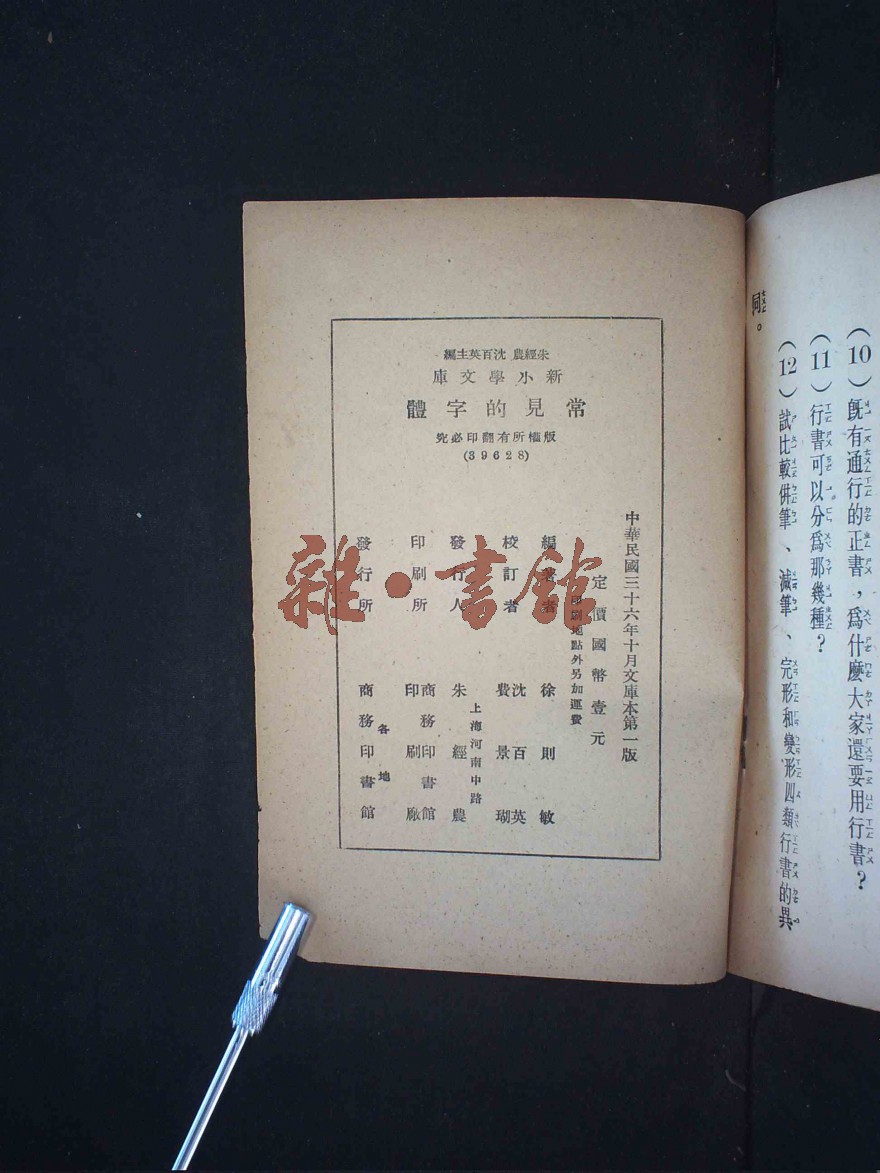 (10) 既有通行的正書，爲什麼大家還要用行書？
(11) 行書可以分爲那幾種？
(12) 試比較併筆、減筆、完形和變形四類行書的異
同。
朱經農 沈百英主編
新小學文庫
常見的字體
版權所有翻印必究
(39628)
中華民國三十六年十月文庫本第一版
定價國幣壹元
印刷地點外另加運費
編著者 徐則敏
校訂者 沈百英
費景瑚
發行人 朱經農
上海河南中路
印刷所 商務印書館
印刷廠
發行所 商務印書館
各地
雜·書館